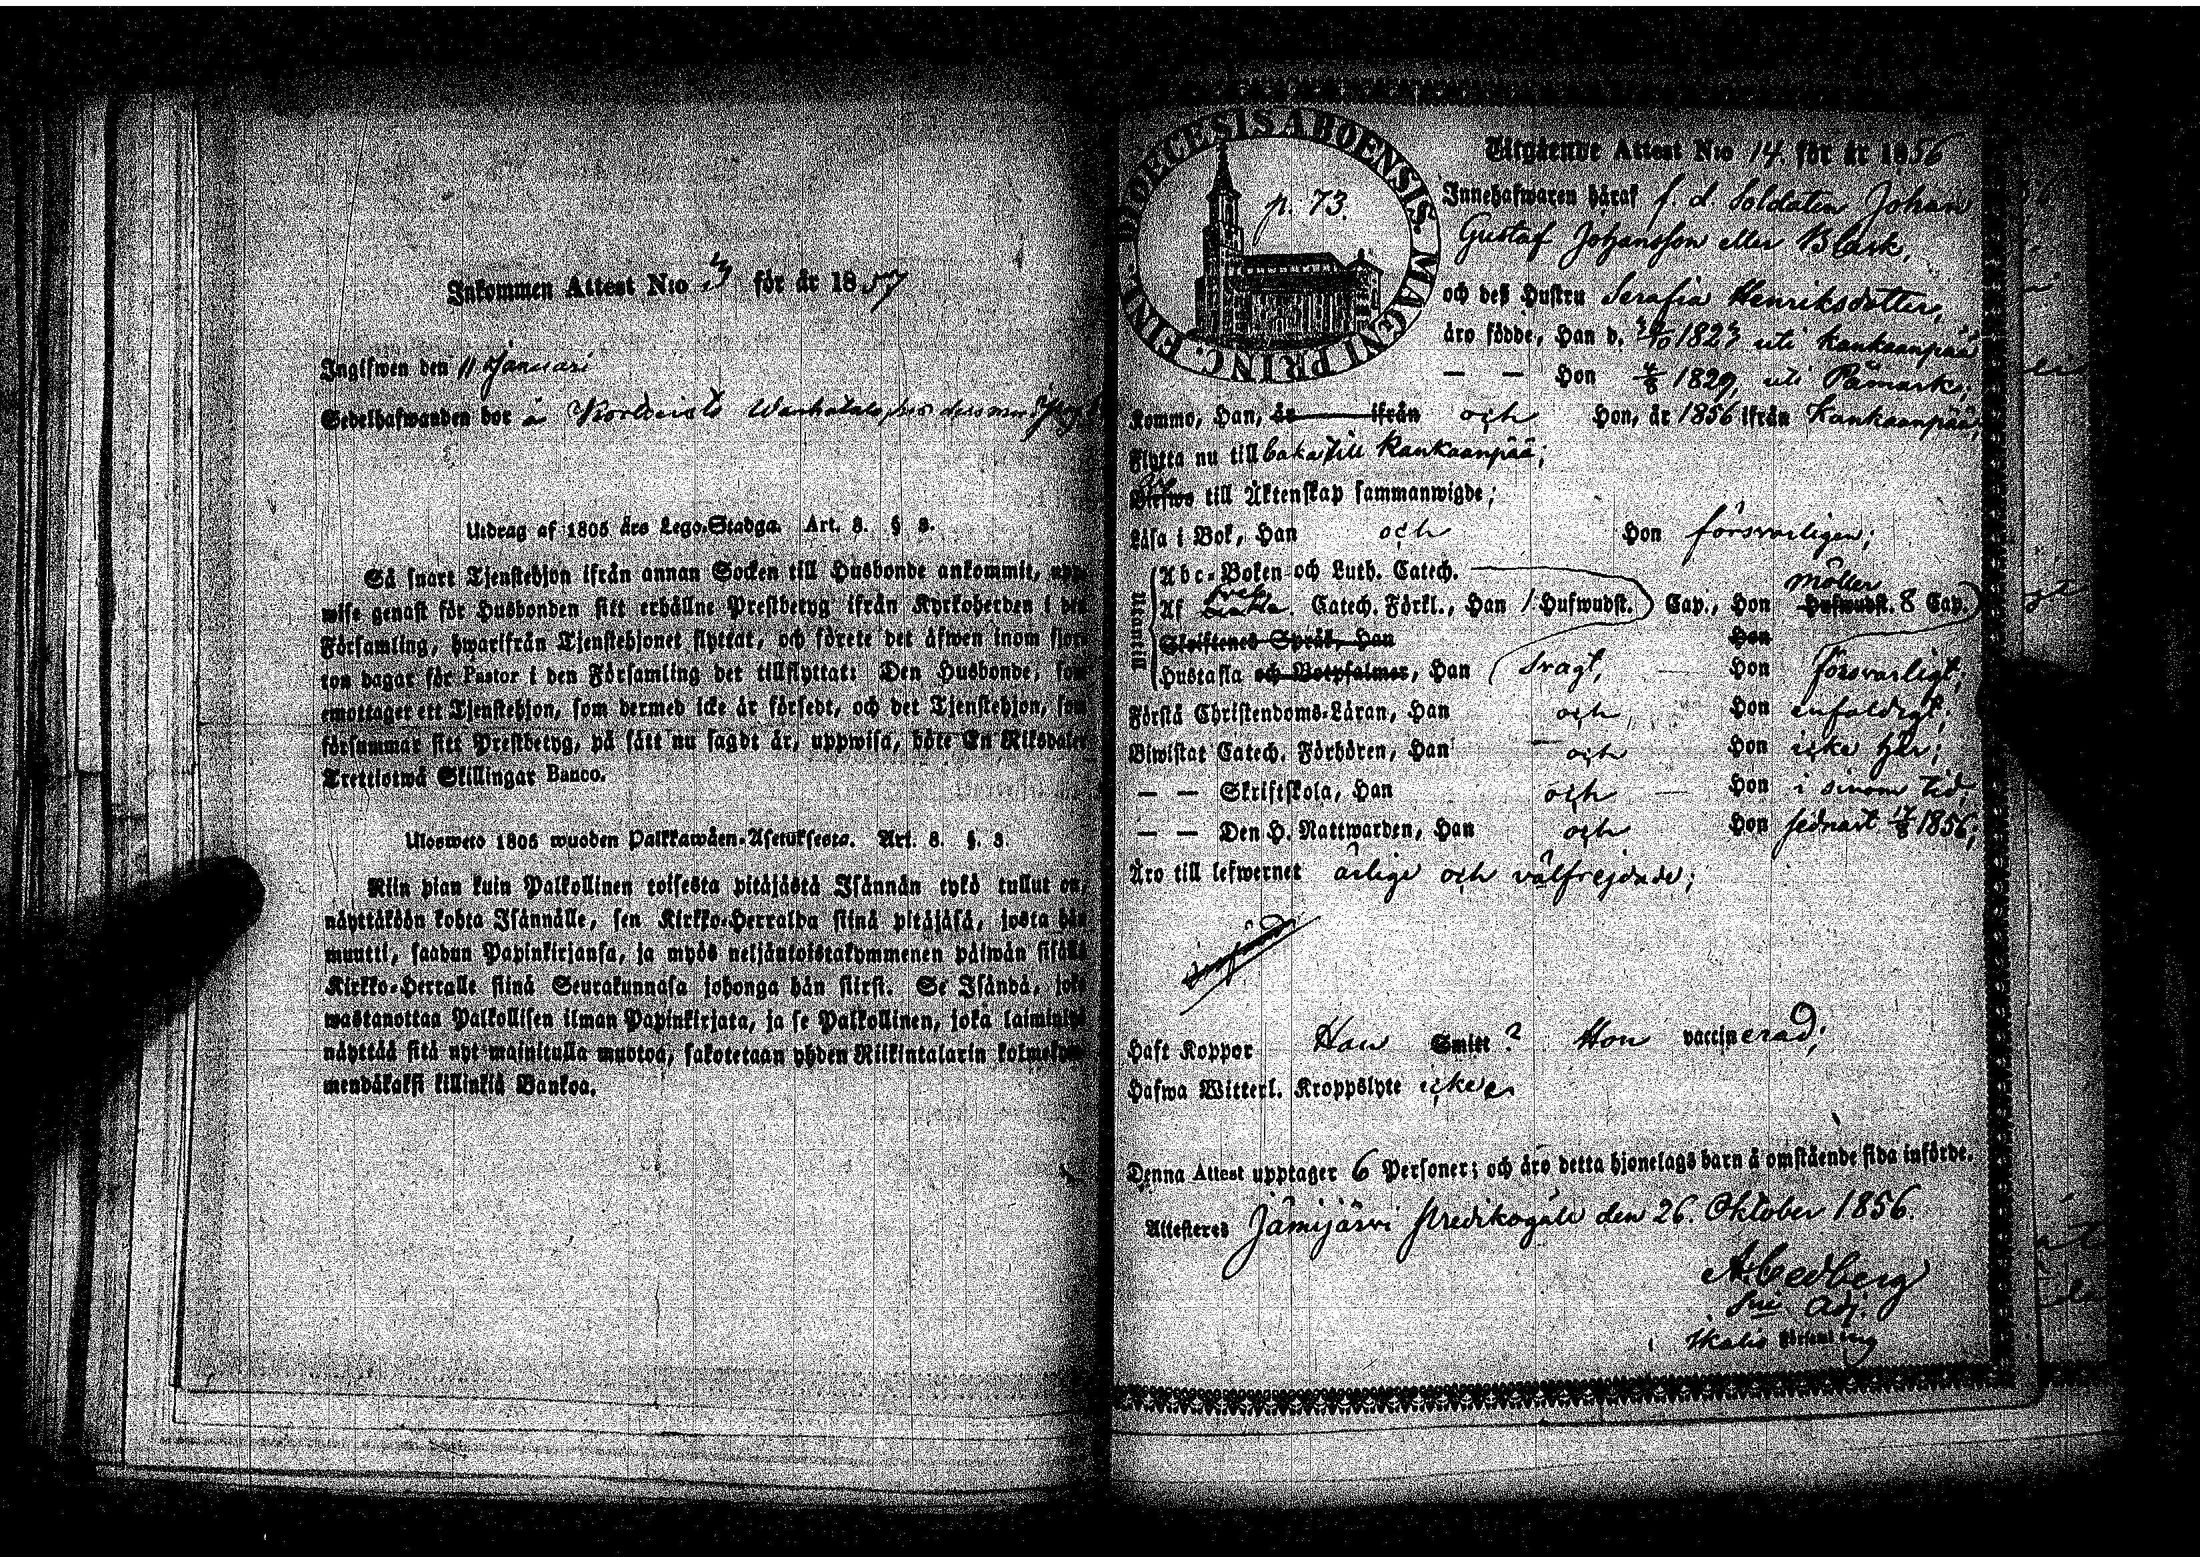 Inkommen Attest N:o 3 för år 1857
Ingifwen den 11 Januari
Sedelhafwanden bor å
Utdrag af 1805 års Lego-Stadga. Art. 8. § 3.
Så snart Tjenstehjon ifrån annan Socken till Husbonde ankommit, upp-
wise genast för Husbonden sitt erhållne Prestbetyg ifrån Kyrkoherden i den
Församling, hwarifrån Tjenstehjonet flyttat, och förete det äfwen inom fjor-
ton dagar för Pastor i den Församling det tillflyttat: Den Husbonde, som
emottager ett Tjenstehjon, som dermed icke är försedt, och det Tjenstehjon, som
försummar sitt Prestbetyg, på sätt nu sagdt är, uppwisa, böte En Riksdaler
Trettiotwå Skillingar Banco.
Ulosweto 1805 wuoden Palkkawäen-Asetuksesta. Art. 8. §. 3.
Niin pian kuin Palkollinen toisesta pitäjästä Isännän tykö tullut on,
näyttäköön kohta Isännälle, sen Kirkko-Herralda siinä pitäjäsä, josta hän
muutti, saadun Papinkirjansa, ja myös neljäntoistakymmenen päiwän sisällä
Kirkko-Herralle siinä Seurakunnasa johonga hän siirsi. Se Isändä, joka
wastanottaa Palkollisen ilman Papinkirjata, ja se Palkollinen, joka laiminlyö
näyttää sitä nyt mainitulla muotoa, sakotetaan yhden Riikintalarin kolmekym-
mendäkaksi killinkiä Bankoa.
DIOECESIS ABOENSIS. MAGNI PRINC. FINL.
p. 73.
Utgående Attest N:o 14. för år 1856
Innehafwaren häraf f. d. Soldaten Johan
Gustaf Johansson eller Blask,
och deß Hustru Serafia Henriksdotter,
äro födde, Han d. 1823 uti Kankaanpää
— — Hon 1829, uti Påmark;
Kommo, Han, år ifrån och Hon, år 1856 ifrån Kankaanpää;
Flytta nu tillbaka till Kankaanpää;
till Äktenskap sammanwigde;
Läsa i Bok, Han och Hon försvarligen;
Utantill
Abc-Boken och Luth. Catech.
Af Catech. Förkl., Han 1 Hufwudst. Cap., Hon möller Hufwudst. 8 Cap.
Skriftenes Språk, Han Hon
Hustafla och Botpsalmer, Han svagt, Hon försvarligt;
Förstå Christendoms-Läran, Han och, Hon enfaldigt;
Biwistat Catech. Förhören, Han och Hon icke här;
— — Skriftskola, Han och Hon i sinom tid,
— — Den H. Nattwarden, Han och Hon sednast 1856;
Äro till lefwernet ärlige och välfrejdade;
Haft Koppor Han Smitt ? Hon vaccinerad;
Hafwa Witterl. Kroppslyte icke
Denna Attest upptager 6 Personer; och äro detta hjonelags barn å omstående sida införde.
Attesteres Jämijärvi Predikogäll den 26. Oktober 1856.
A. Cedberg
Adj.
Ikalis Församling